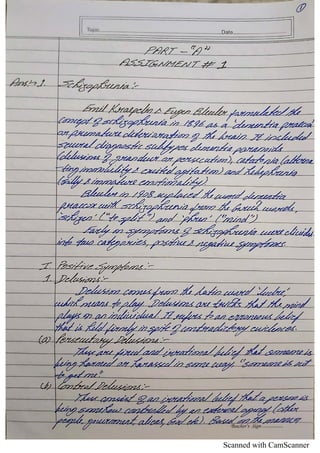 ①
Topic Date
PART - "A"
ASSIGNMENT # 1
Ans# 1. Schizophrenia:-
Emil Kraepelin & Eugen Bleuler formulated the
concept of schizophrenia in 1896 as a 'dementia praecox'
or premature deterioration of the brain. It included
several diagnostic subtypes dementia paranoide
(delusions of grandeur or persecution), catatonia (alterna
ting immobility & excited agitation) and hebephrenia
(silly & immature emotionality).
Bleuler in 1908 replaced the word dementia
praecox with schizophrenia from the greek words,
'schizen' ("to split") and 'phren' ("mind")
Early on symptoms of schizophrenia were divided
into two categories, positive & negative symptoms.
I. Positive Symptoms:-
1. Delusions:-
Delusion comes from the Latin word 'ludere'
which means to play. Delusions are tricks that the mind
plays on an individual. It refers to an erroneous belief
that is held firmly in spite of contradictory evidences.
(a) Persecutory Delusions:-
These are fixed and irrational belief that someone is
being harmed or harassed in some way. "someone is out
to get me".
(b) Control Delusions:-
This consist of an irrational belief that a person is
being somehow controlled by an external agency (other
people, government, aliens, God etc). Based on the manner
Teacher's Sign
Scanned with CamScanner